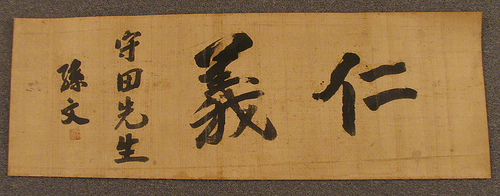 仁義
守田先生
孫文